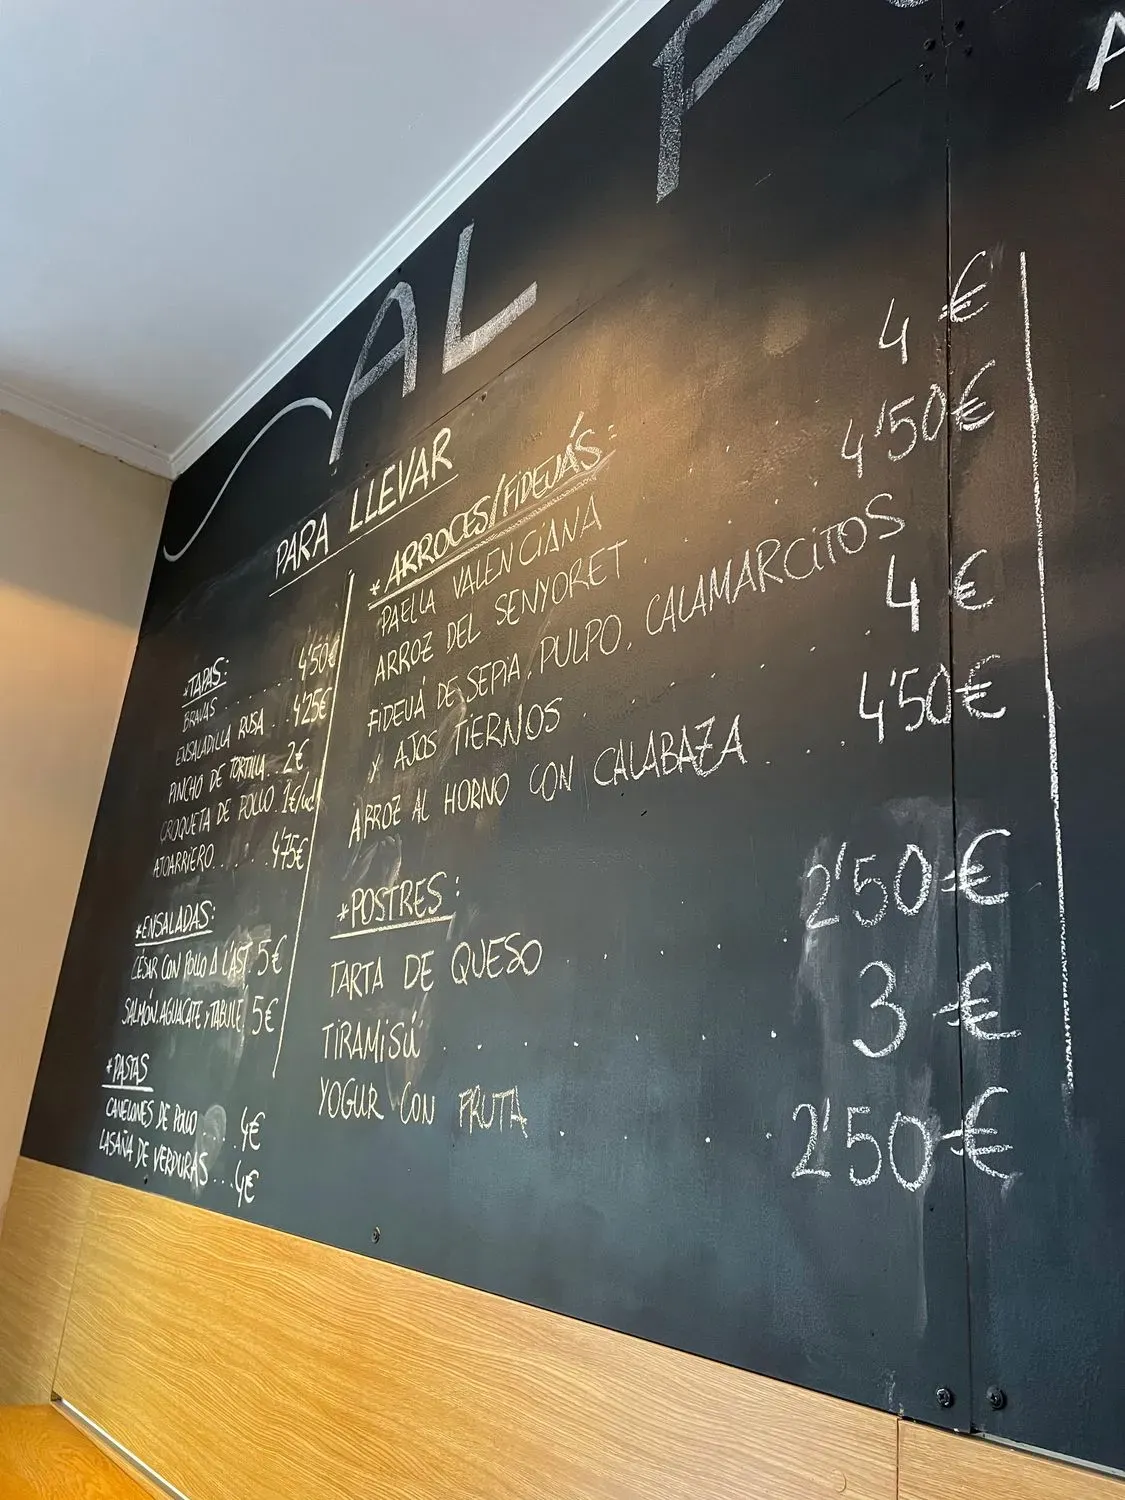 AL P
PARA LLEVAR
*TAPAS:
BRAVAS ........ 4'50€
ENSALADILLA RUSA .. 4'25€
PINCHO DE TORTILLA .. 2€
CROQUETA DE POLLO . 1€/ud
AJOARRIERO ...... 4'75€
*ENSALADAS:
CÉSAR CON POLLO A L'AST. 5€
SALMÓN, AGUACATE Y TABULÉ 5€
*PASTAS
CANELONES DE POLLO .... 4€
LASAÑA DE VERDURAS ... 4€
*ARROCES/FIDEUÁS:
PAELLA VALENCIANA ..... 4€
ARROZ DEL SENYORET ..... 4'50€
FIDEUÁ DE SEPIA, PULPO, CALAMARCITOS
Y AJOS TIERNOS ....... 4€
ARROZ AL HORNO CON CALABAZA ... 4'50€
*POSTRES:
TARTA DE QUESO ..... 2'50€
TIRAMISÚ ........ 3€
YOGUR CON FRUTA ...... 2'50€